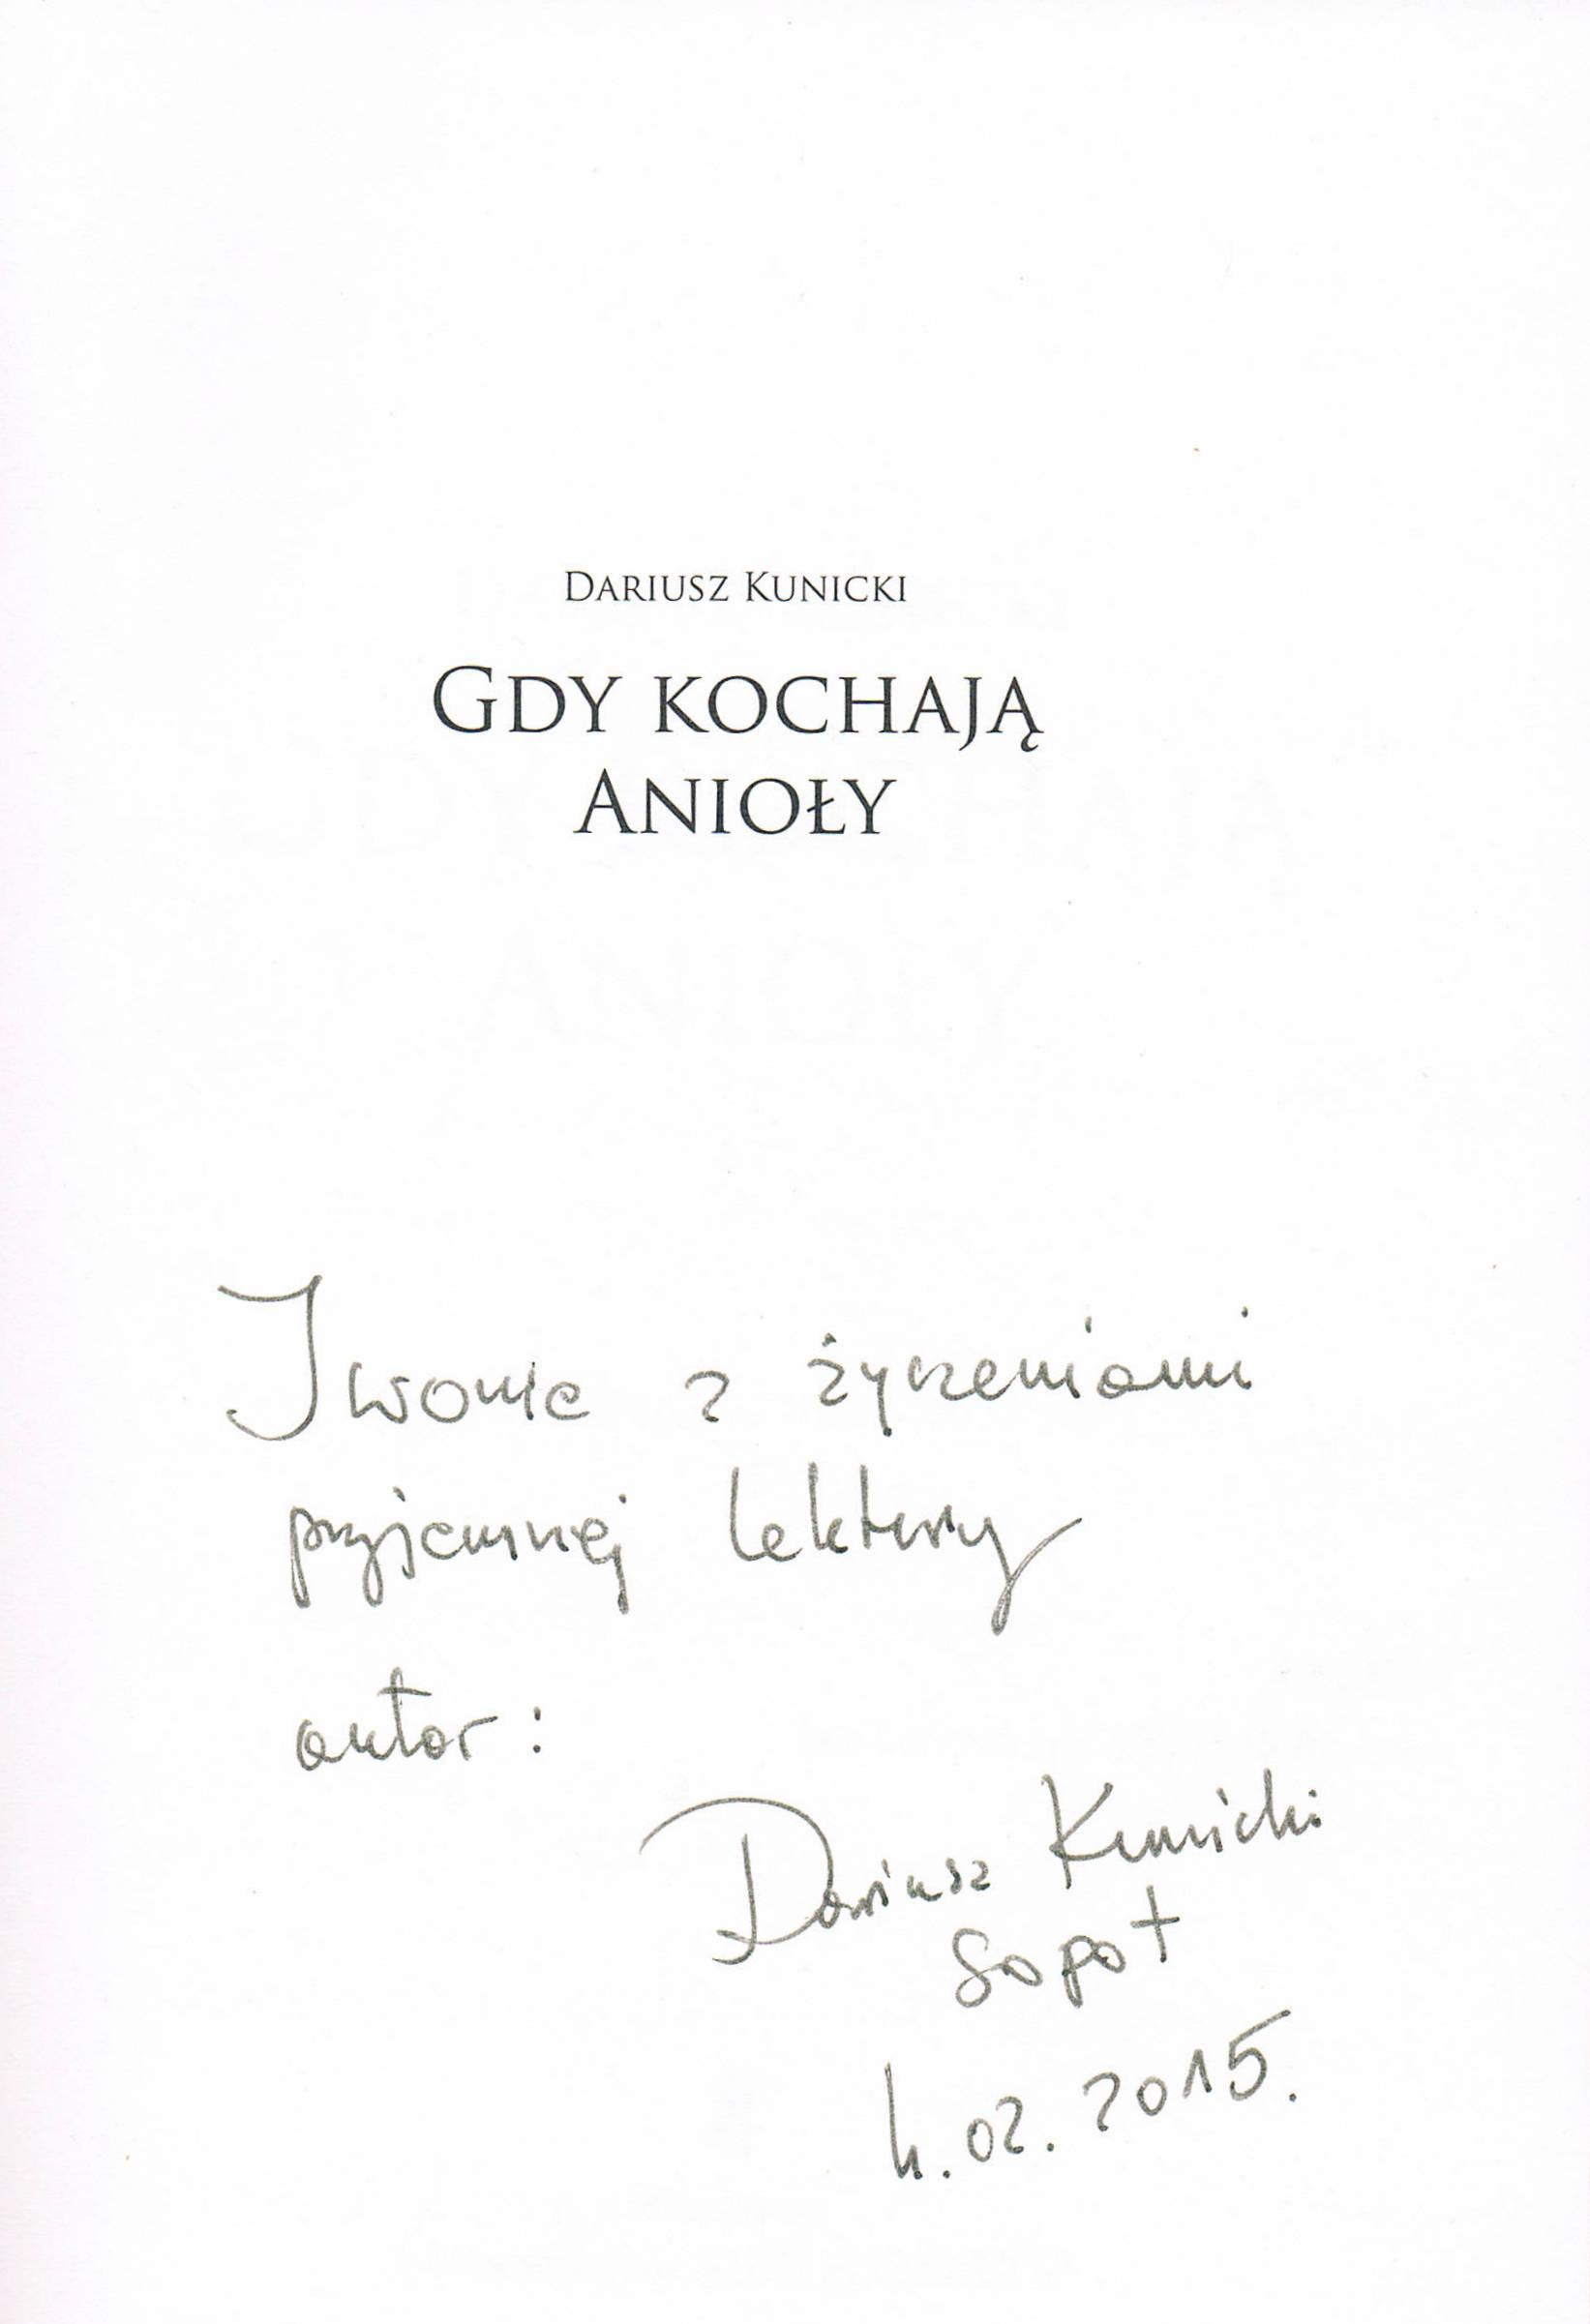 Dariusz Kunicki
Gdy kochają
Anioły
Iwonie z życzeniami
przyjemnej lektury
autor:
Dariusz Kunicki
Sopot
4.02.2015.